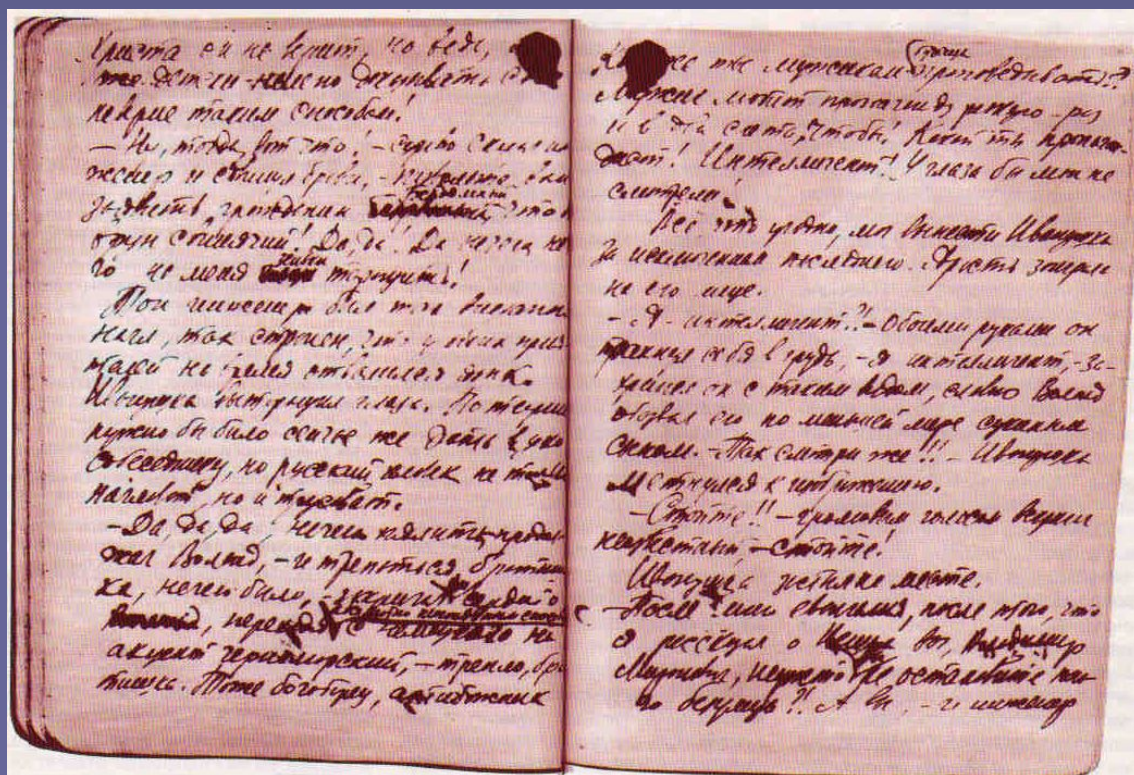 Христа он не верит, но ведь,
же детски доказывать свое
неверие таким способом!
– Ну, тогда вот что! – сурово сказал ин-
женер и сдвинул брови, – позвольте вам
заявить, гражданин Бездомный, что
врун свинячий! Да, да! Да нечего на
меня тарощить!
Тон инженера был так внезапно
нагл, так странен, что у обоих прия-
телей на время отвалился язык.
Иванушка вытаращил глаза. По теории
нужно бы было сейчас же дать в ухо
собеседнику, но русский человек не только
нагловат, но и трусоват.
– Да, да, да, нечего пялить, продол-
жал Воланд, – и трепаться, братиш-
ка, нечего было, – закричал сердито
акцент черноморский, – трепло, бра-
тишка. Тоже богоборец, антибожник
же ты мужикам будешь проповедывать?!
Мужик любит пропаганду резкую – раз
и в два счета, чтобы! Какой ты пропаган-
дист! Интеллигент! У глаза бы мои не
смотрели!
Все что угодно, мог вынести Иванушка
за исключением последнего. Ярость заиграла
на его лице.
– Я – интеллигент?! – Обоими руками он
трахнул себя в грудь, – я интеллигент, – за-
хрипел он с таким видом, словно Воланд
обозвал его по меньшей мере сукиным
сыном. – Так смотри же!! – Иванушка
метнулся к изображению.
– Стойте!! – громовым голосом вскричал
неизвестный – стойте!
Иванушка застыл на месте.
– После евангелия, после того, что
я рассказал о вы, Владимир
Миронович, неужто не остановите
безумца?! А вы, – и инженер